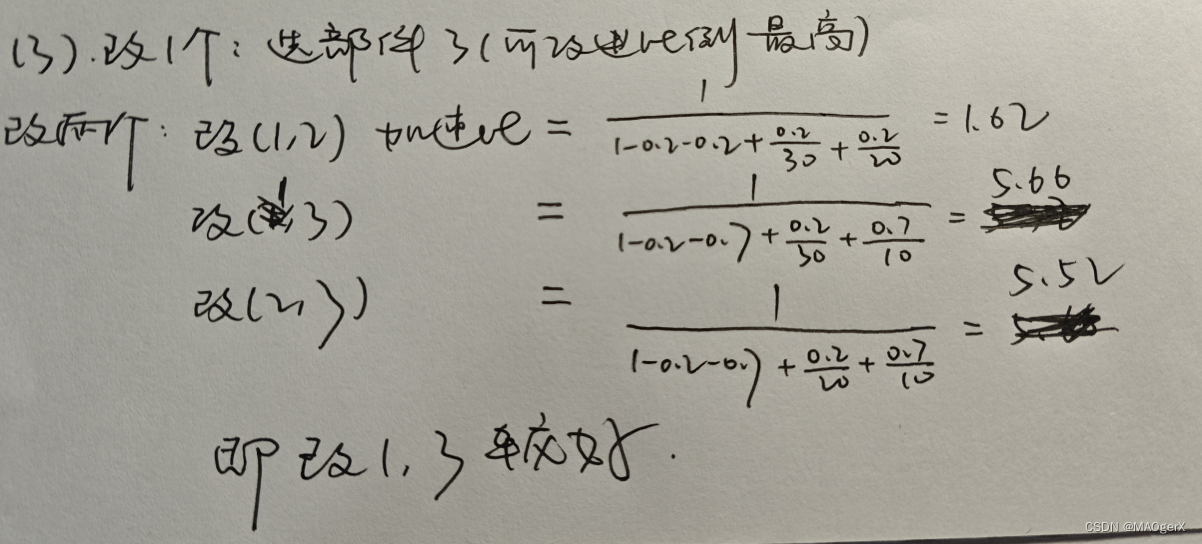 (3).改1个:选部件3(可改进比例最高)
改两个:改(1,2) 加速比 = 1/(1-0.2-0.2+0.2/30+0.2/20) = 1.62
改(1,3) = 1/(1-0.2-0.7+0.2/30+0.7/10) = 5.66
改(2,3) = 1/(1-0.2-0.7+0.2/20+0.7/10) = 5.52
即改1,3 好.
CSDN @MAOgerX